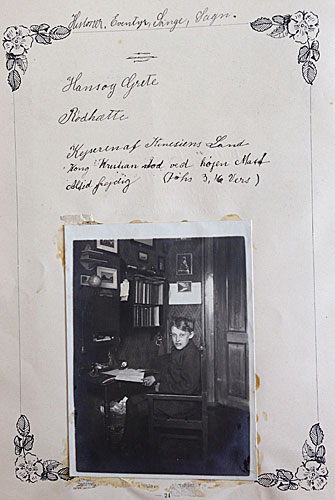 Historier. Eventyr, Sange, Sagn.
Hans og Grete
Rødhætte
Kejseren af Land
Kong Kristian stod ved højen Mast
Altid frejdig (Johs 3, 16 Vers)
— 24 —